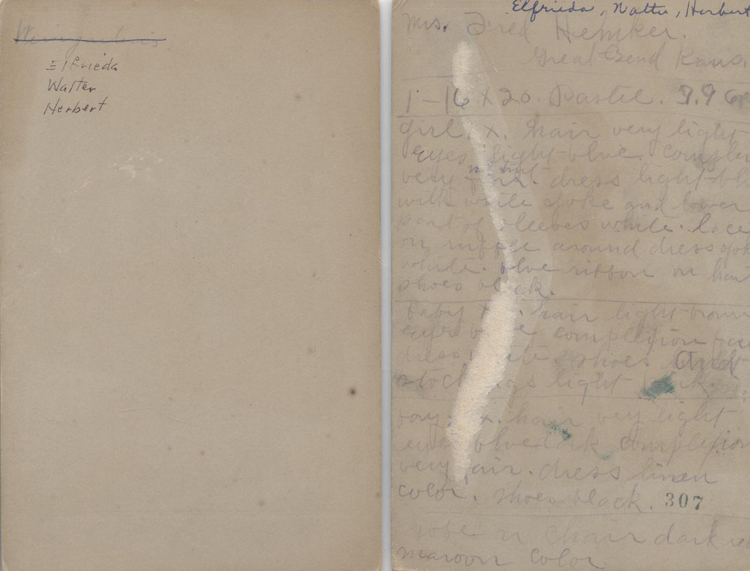 Elfrieda
Walter
Herbert
Elfrieda, Walter, Herbert
Mrs. Fred Hemker.
Great Bend Kans.
1-16 x 20. Pastel. 9.96
girl. x. hair very light
eyes light-blue. complex
very fair. dress light-bl
with white yoke and lower
part of sleeves white. lace
on ruffle around dress yok
white. blue ribbon on hair
shoes black.
baby x. hair light-brown
eyes blue complexion fair
dress white shoes and
stockings light
boy. x. hair very light
eyes blue complexion
very fair. dress linen
color. shoes black. 307
robe on chair dark
maroon color